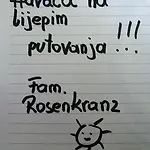 Hvala na
lijepim
putovanja !!!
Fam.
Rosenkranz